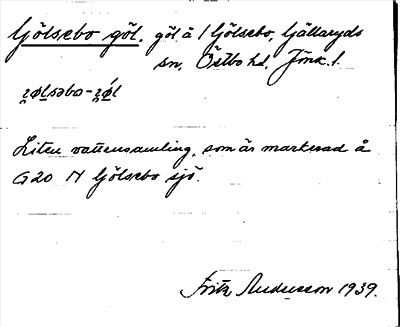 Ljölsebo göl. göl å 1 Ljölsebo, Gällaryds
sn, Östbo hd, Jönk. l.
Liten vattensamling, som är markerad å
G20 N Ljölsebo sjö.
Fritz Andersson 1939.